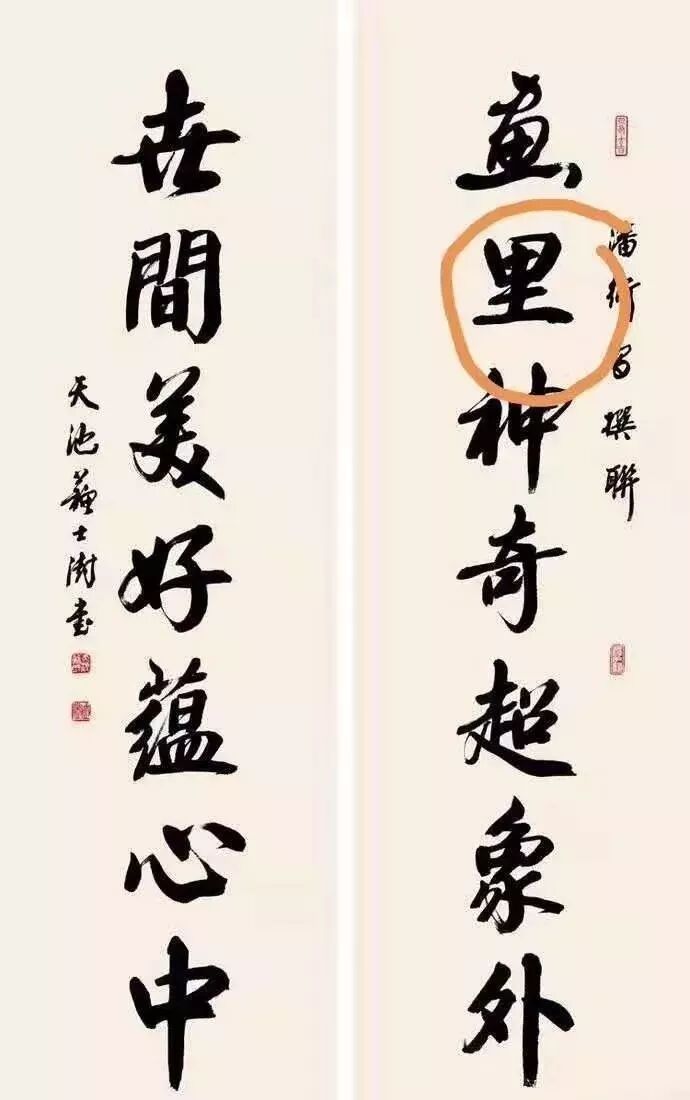 画里神奇超象外
潘衍習撰聯
世間美好蘊心中
天池蘇士澍書